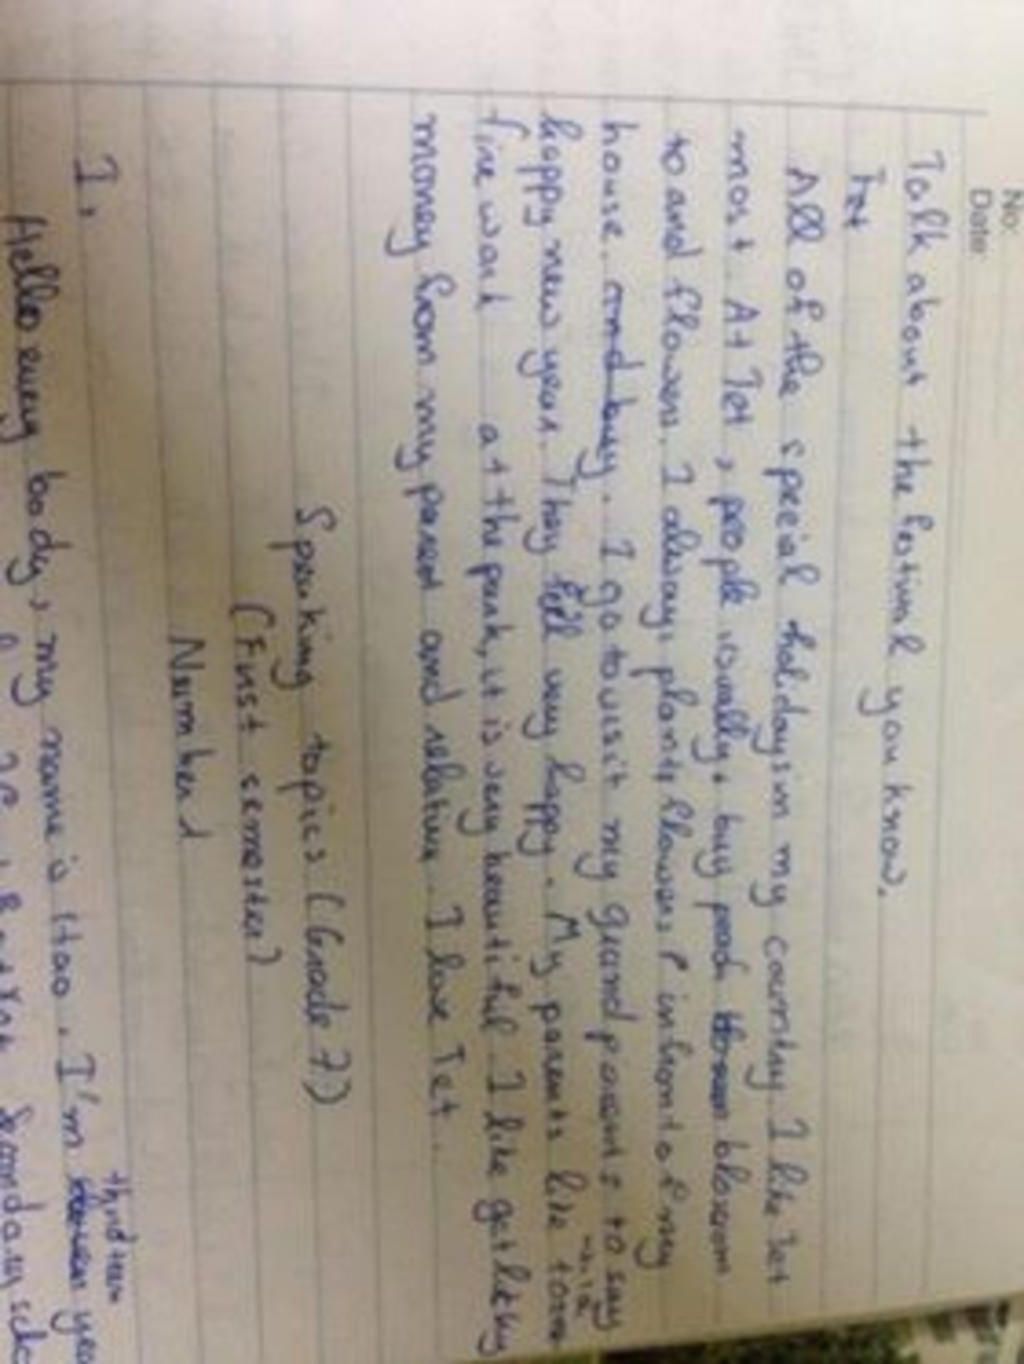 No:
Date:
Talk about the festival you know.
Tet
All of the special holidays in my country I like Tet
most. At Tet, people usually buy peach blossom
to and flowers. I always plants flowers in front of my
house. and buy. I go to visit my grand parents to say
happy new year. They feel very happy. My parents like to
fire work at the park, it is very beautiful I like get lucky
money from my parent and relative. I love Tet.
Speaking topics (Grade 7))
(First semester)
Number 1
1,
Hello every body, my name is Hao. I'm thirdteen yea
Secondary scho